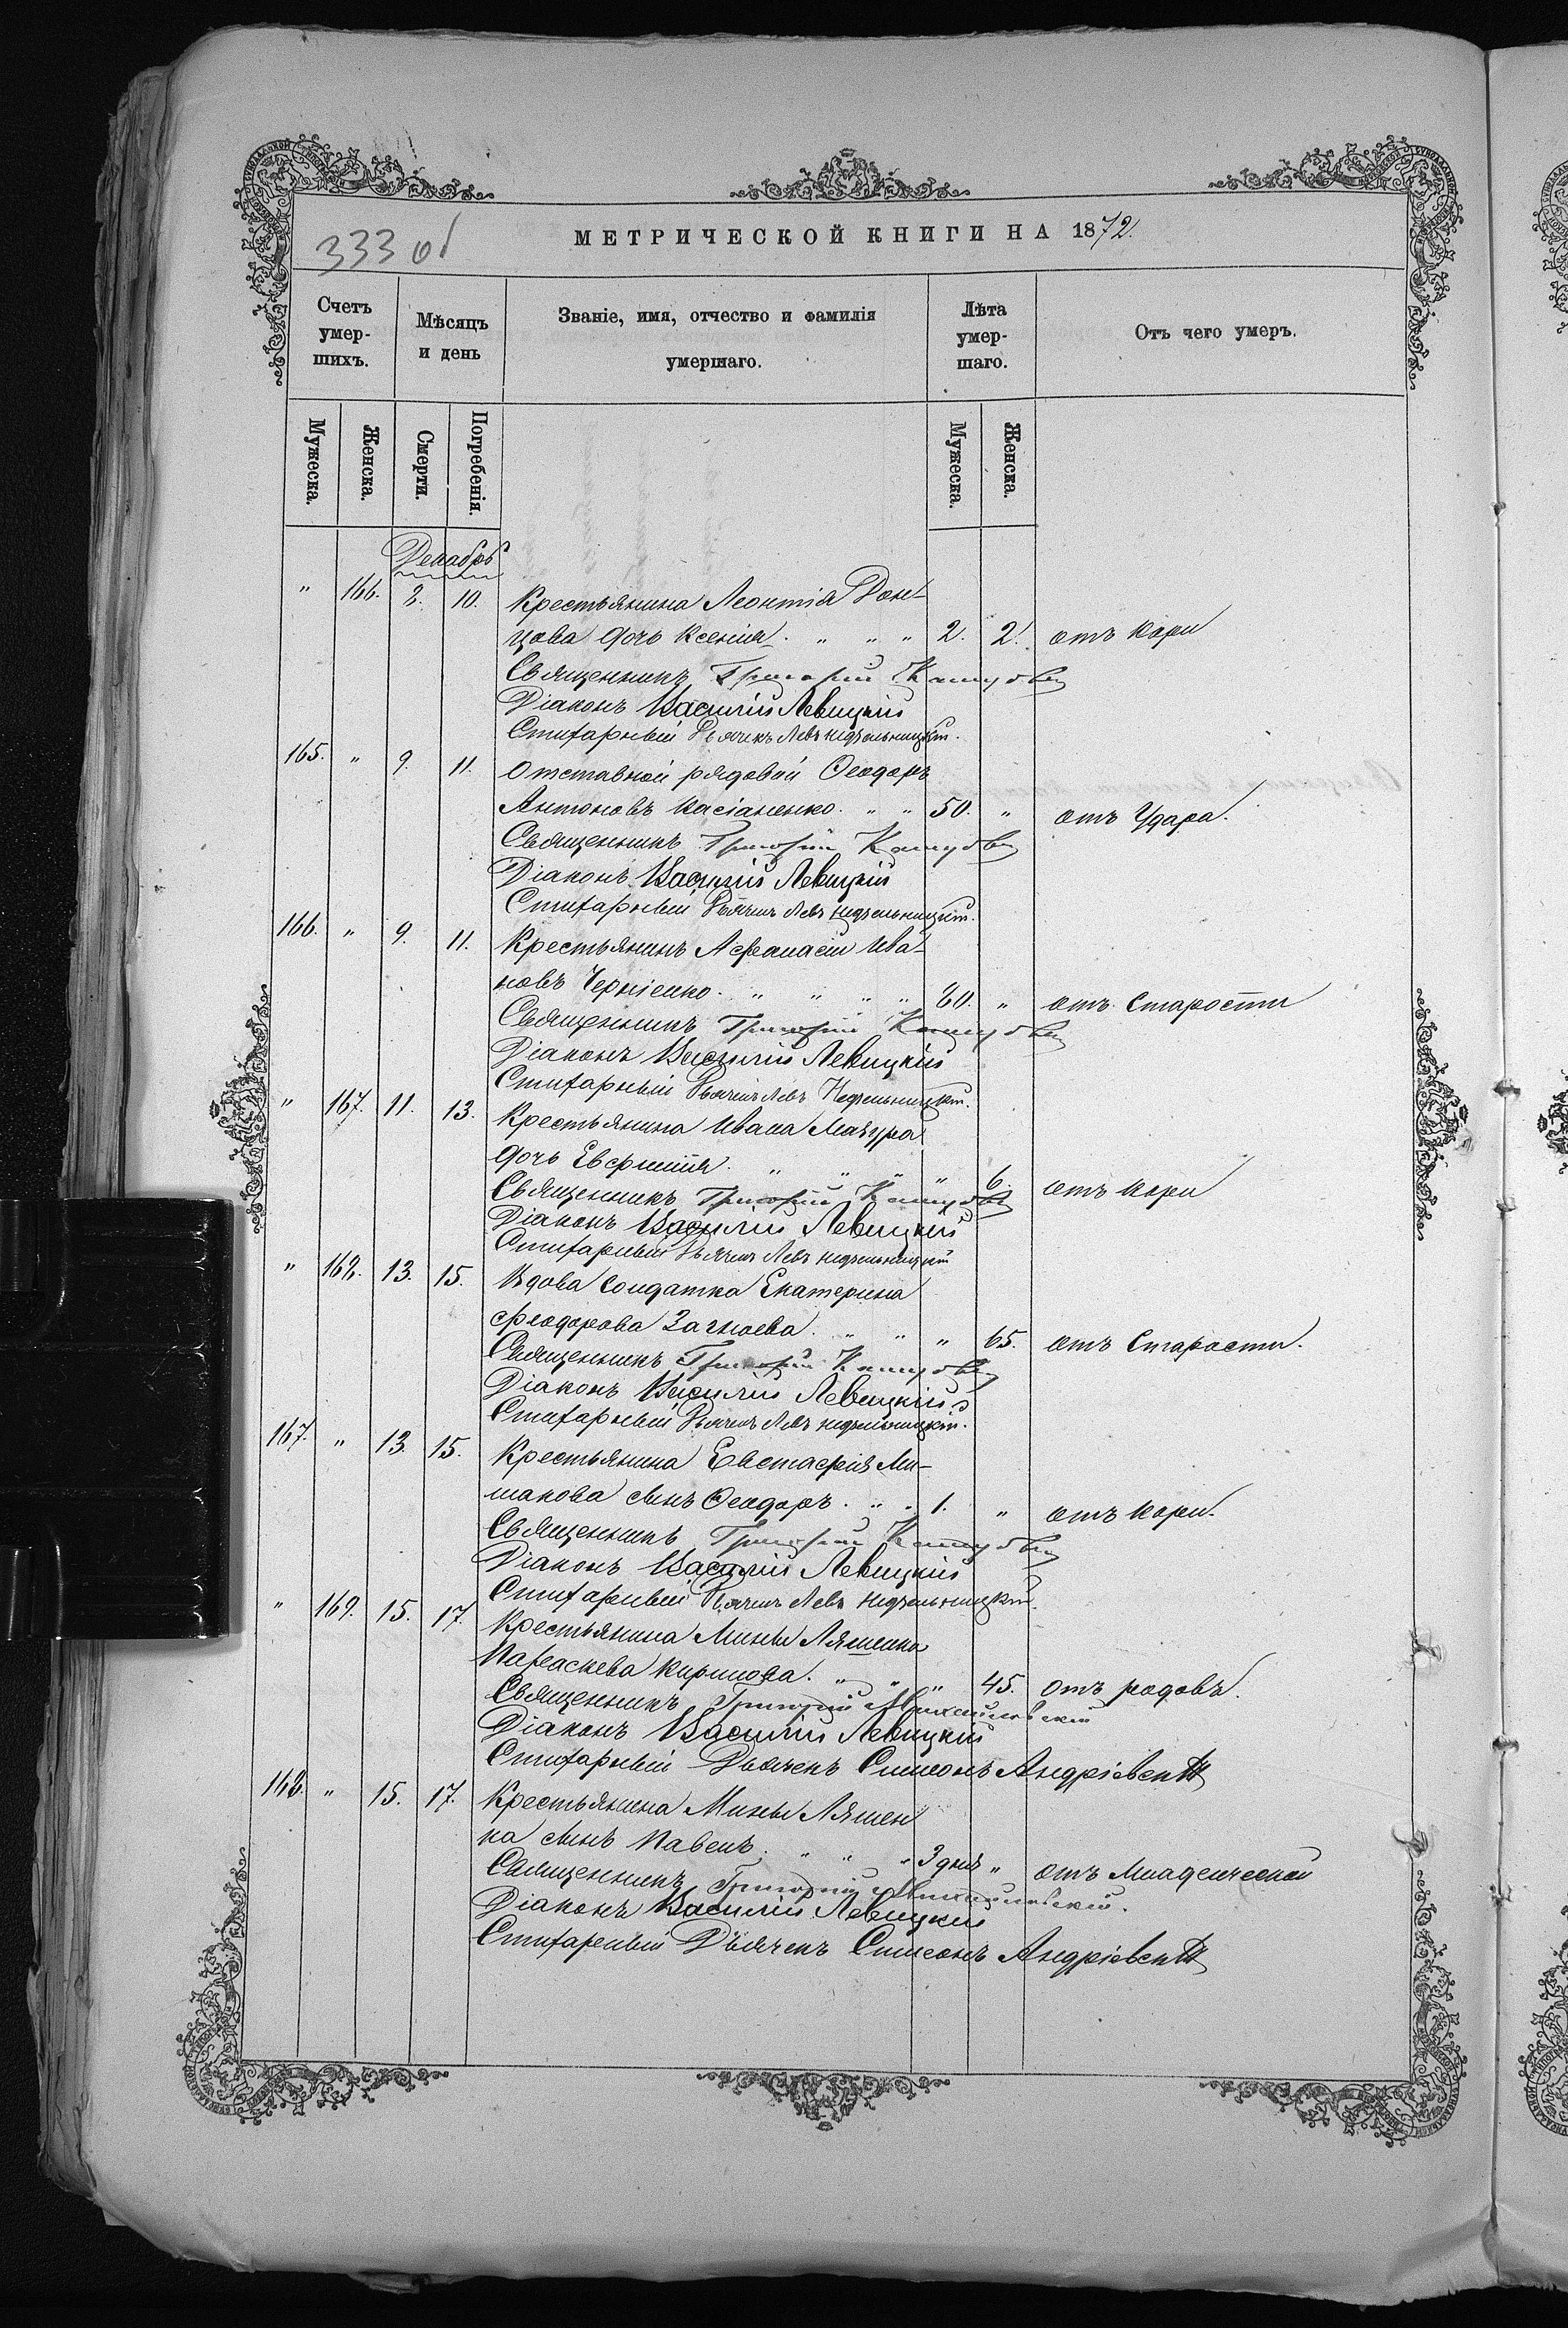 333 об
МЕТРИЧЕСКОЙ КНИГИ НА 1872.
Счетъ умер-шихъ.
Мѣсяцъ и день
Званіе, имя, отчество и фамилія умершаго.
Лѣта умер-шаго.
Отъ чего умеръ.
Мужеска. Женска. Смерти. Погребенія. Мужеска. Женска.
Декабрь
" 166. 8. 10. Крестьянина Леонтія Дон-
цова дочь Ксенія. " " " 2. 2. отъ кори
Священникъ Григорій
Діаконъ Василій Левицкій
Стихарный Дьячекъ Левъ Недзельницкій.
165. " 9. 11. Отставной рядовой Ѳеодоръ
Антоновъ Касіаненко. " " 50. " отъ Удара.
Священникъ Григорій
Діаконъ Василій Левицкій
Стихарный Дьячекъ Левъ Недзельницкій.
166. " 9. 11. Крестьянинъ Афанасій Ива-
новъ Черніенко. " " " " 80. " отъ Старости
Священникъ Григорій
Діаконъ Василій Левицкій
Стихарный Дьячекъ Левъ Недзельницкій.
" 167. 11. 13. Крестьянина Ивана Мазура
дочь Евфимія. " " " " 6. отъ кори
Священникъ Григорій
Діаконъ Василій Левицкій
Стихарный Дьячекъ Левъ Недзельницкій
" 168. 13. 15. Вдова солдатка Екатерина
Феодорова " " " 65. отъ Старости.
Священникъ Григорій
Діаконъ Василій Левицкій
Стихарный Дьячекъ Левъ Недзельницкій.
167. " 13. 15. Крестьянина Евстафія Ми-
шакова сынъ Ѳеодоръ. " " 1. " отъ кори.
Священникъ Григорій
Діаконъ Василій Левицкій
Стихарный Дьячекъ Левъ Недзельницкій.
" 169. 15. 17. Крестьянина Мины Ляшенка
Параскева Кирилова. " " " 45. отъ родовъ.
Священникъ Григорій Михайловскій
Діаконъ Василій Левицкій
Стихарный Дьячекъ Симеонъ Андріевскій
168. " 15. 17. Крестьянина Мины Ляшен
ка сынъ Павелъ. " " " 3 дня " отъ Младенческой
Священникъ Григорій Михайловскій.
Діаконъ Василій Левицкій
Стихарный Дьячекъ Симеонъ Андріевскій